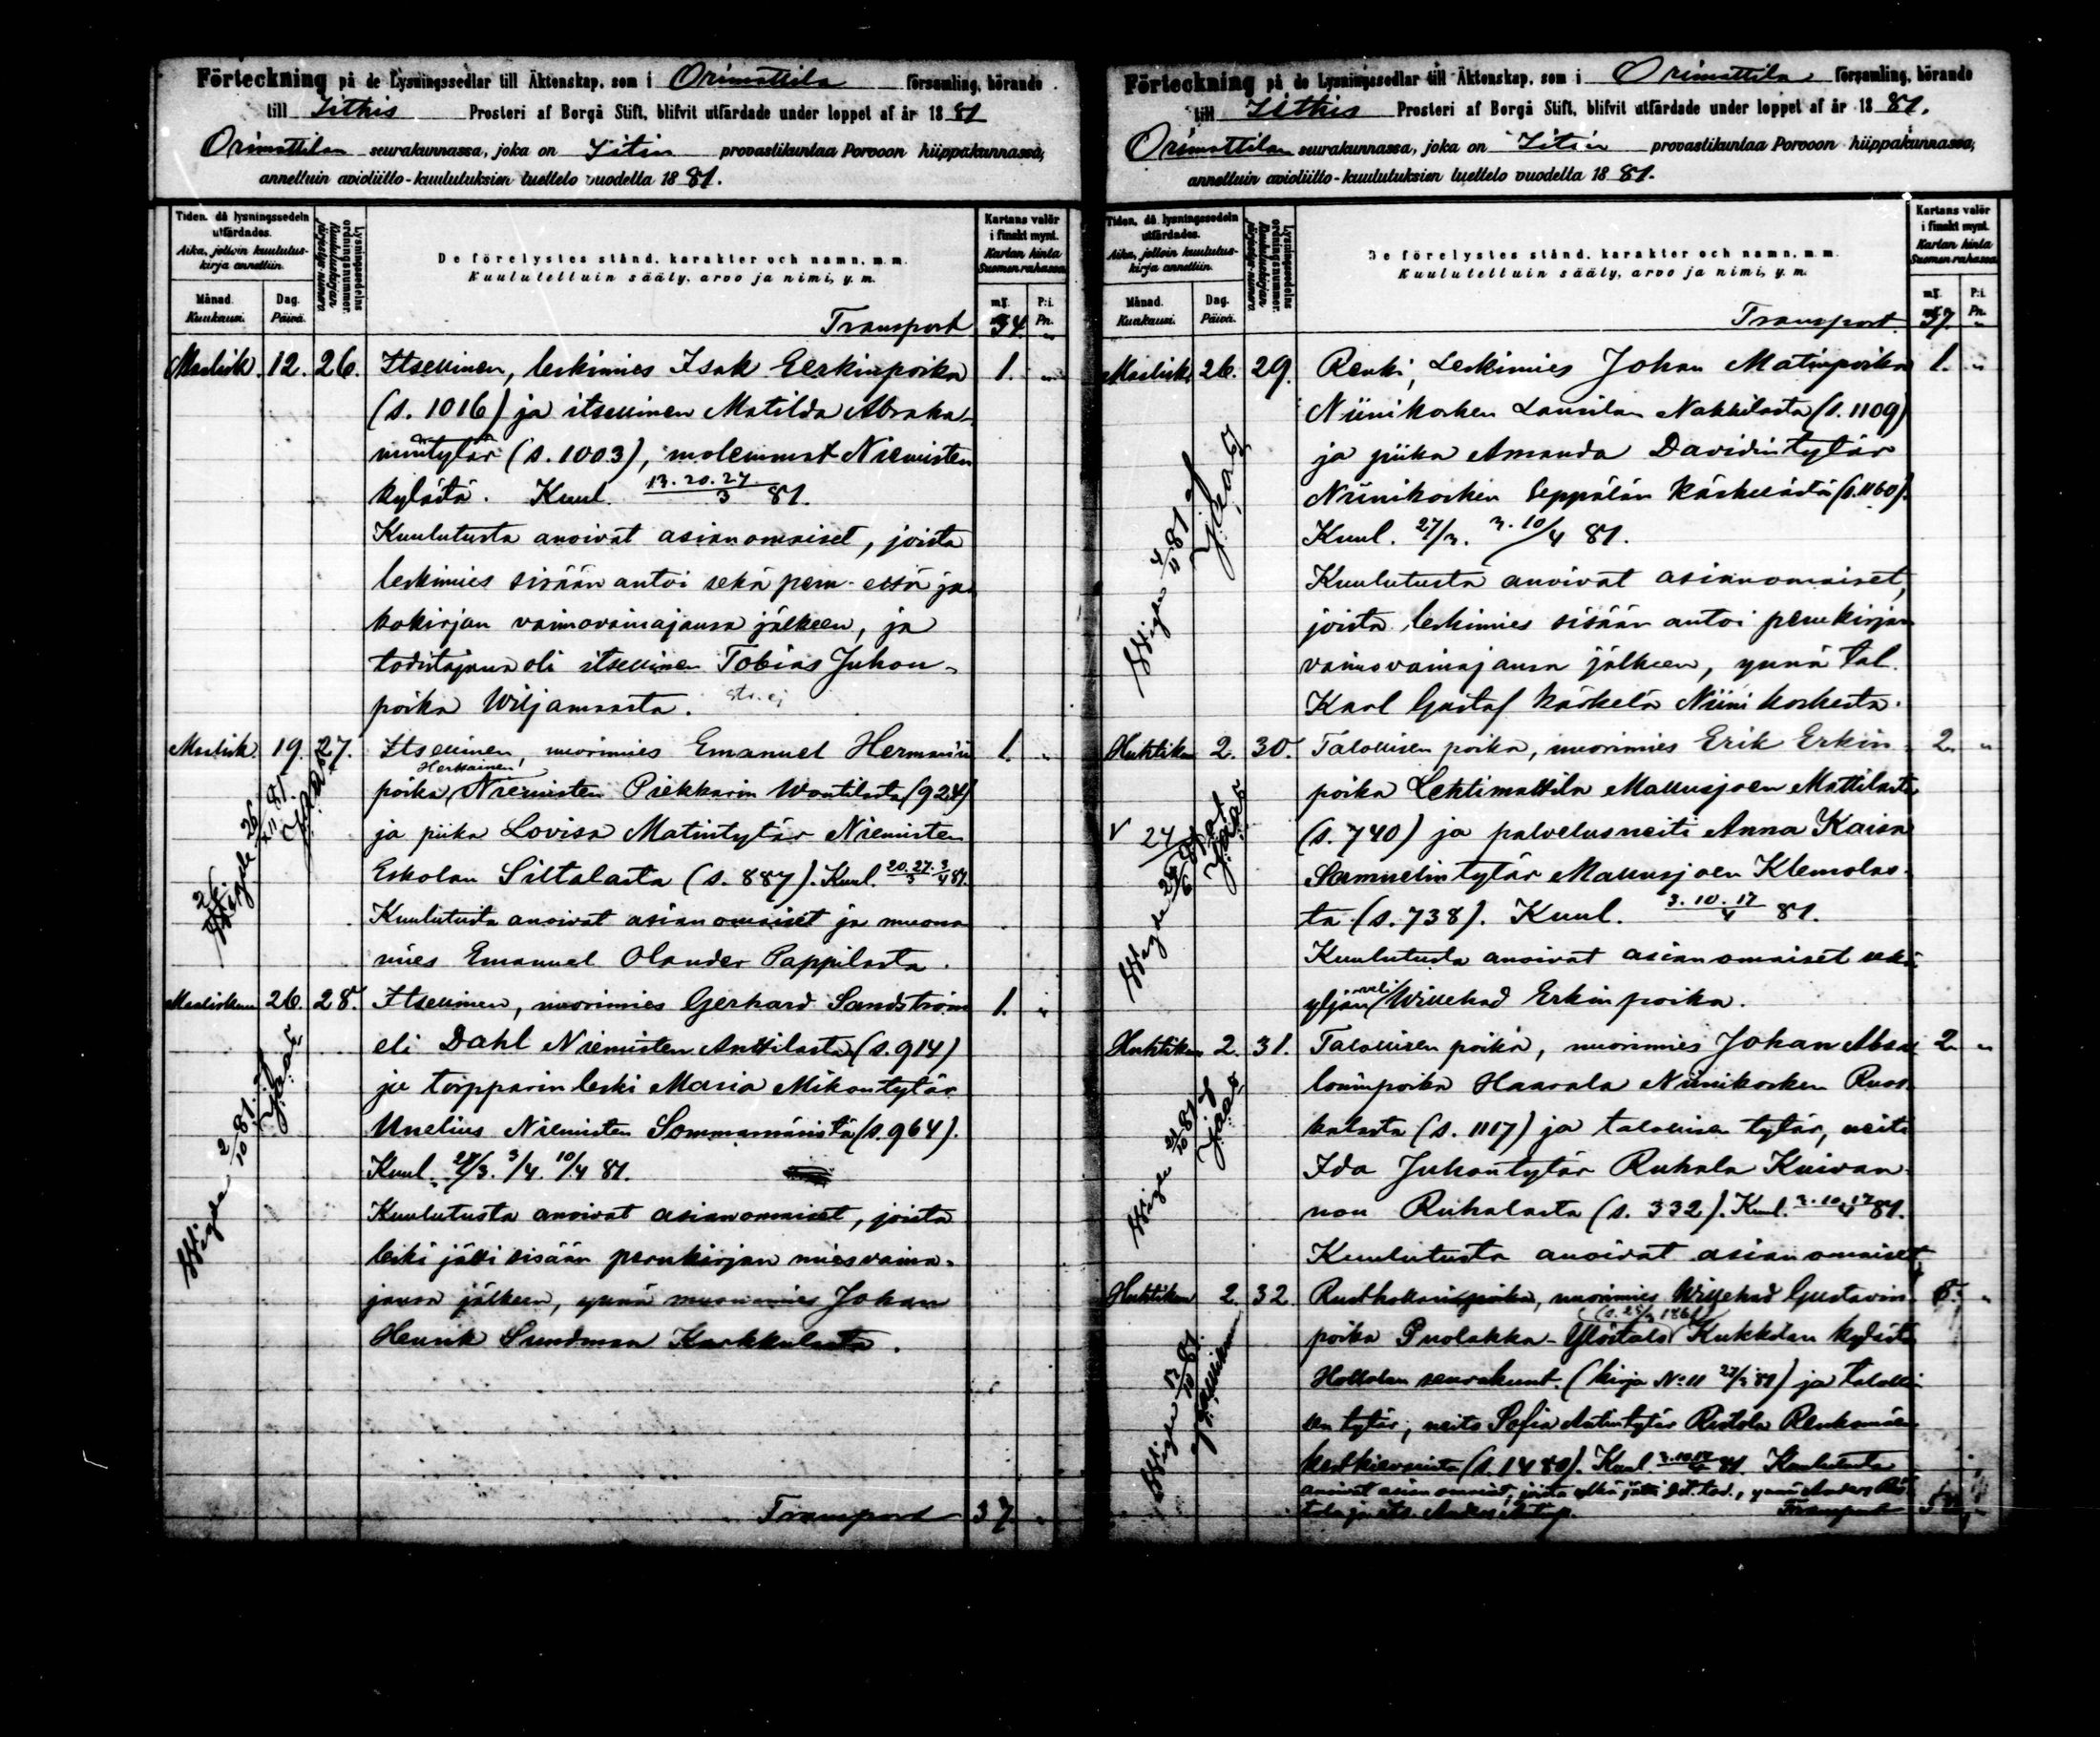 Förteckning på de Lysningssedlar till Äktenskap, som i Orimattila församling, hörande
till Iithis Prosteri af Borgå Stift, blifvit utfärdade under loppet af år 1881
Orimattilan seurakunnassa, joka on Iitin provastikuntaa Porvoon hiippakunnassa,
annettuin avioliitto-kuulutuksien luettelo vuodella 1881.
Tiden, då lysningssedeln utfärdades.
Aika, jolloin kuulutus-kirja annettiin.
Månad. Kuukausi.
Dag. Päivä.
Lysningssedelns ordningsnummer.
Kuulutuskirjan järjestys-numero
De förelystes stånd, karakter och namn, m. m.
Kuulutettuin sääty, arvo ja nimi, y. m.
Kartans valör i finskt mynt.
Kartan hinta Suomen rahassa
mf. P:i.
Pn.
Transport 34 "
Maalisk. 12. 26. Itsellinen, leskimies Isak Eerkinpoika 1. "
(s. 1016) ja itsellinen Matilda Abraha-
mintytär (s. 1003), molemmat Niemisten
kylästä. Kuul. 13. 20. 27/3 81.
Kuulutusta anoivat asianomaiset, joista
leskimies sisään antoi sekä peru- että ja-
kokirjan vaimovainajansa jälkeen, ja
todistajana oli itsellinen Tobias Juhon-
poika Wiljamaasta.
Maalisk. 19. 27. Itsellinen, nuorimies Emanuel Hermanin 1. "
Herkainen!
poika, Niemisten Piekkarin Woutilasta (924)
ja piika Lovisa Matintytär Niemisten
Eskolan Siltalasta (s. 887). Kuul. 20. 27./3 3/4 81.
Kuulutusta anoivat asianomaiset ja muona
mies Emanuel Olander Pappilasta.
Wigde 26/11 81.
Maaliskuu 26. 28. Itsellinen, nuorimies Gerhard Sandström 1. "
eli Dahl Niemisten Anttilasta (s. 914)
ja torpparin leski Maria Mikontytär
Unelius Niemisten Sommarnäsistä (s. 964).
Kuul. 27/3. 3/4. 10/4 81.
Kuulutusta anoivat asianomaiset, joista
leski jätti sisään perukirjan miesvaina-
jansa jälkeen, ynnä muonamies Johan
Henrik Sundman Karkkulasta.
Wigde 2/10 81.
Transport 37 "
Förteckning på de Lysningssedlar till Äktenskap, som i Orimattila församling, hörande
till Iithis Prosteri af Borgå Stift, blifvit utfärdade under loppet af år 1881.
Orimattilan seurakunnassa, joka on Iitin provastikuntaa Porvoon hiippakunnassa,
annettuin avioliitto-kuulutuksien luettelo vuodella 1881.
Tiden, då lysningssedeln utfärdades.
Aika, jolloin kuulutus-kirja annettiin.
Månad. Kuukausi.
Dag. Päivä.
Lysningssedelns ordningsnummer.
Kuulutuskirjan järjestys-numero
De förelystes stånd, karakter och namn, m. m.
Kuulutettuin sääty, arvo ja nimi, y. m.
Kartans valör i finskt mynt.
Kartan hinta Suomen rahassa
mf. P:i.
Pn.
Transport 37. "
Maalisk. 26. 29. Renki, Leskimies Johan Matinpoika 1. "
Niinikosken Lausilan Nakkilasta (s. 1109)
ja piika Amanda Davidintytär
Niinikosken Seppälän Käskelästä (s. 1160).
Kuul. 27/3. 3. 10/4 81.
Kuulutusta anoivat asianomaiset,
joista leskimies sisään antoi perukirjan
vaimovainajansa jälkeen, ynnä tal.
Karl Gustaf Käskelä Niinikoskesta.
Wigde 4/11 81
Huhtikuu 2. 30. Talollisen poika, nuorimies Erik Erkin- 2. "
poika Lehtimattila Mallusjoen Mattilasta
(s. 740) ja palvelusneiti Anna Kaisa
Samuelintytär Mallusjoen Klemolas-
ta (s. 738). Kuul. 3. 10. 17/4 81.
Kuulutusta anoivat asianomaiset sekä
yljän veli Willehad Erkinpoika.
V 24
Wigde 24/6 81
Huhtikuu 2. 31. Talollisen poika, nuorimies Johan Absa- 2. "
lominpoika Haarala Niinikosken Ruos-
kalasta (s. 1117) ja talollisen tytär, neiti
Ida Juhontytär Ruhala Kuivan-
non Ruhalasta (s. 332). Kuul. 3. 10. 17/4 81.
Kuulutusta anoivat asianomaiset
Wigde 21/10 81
Huhtikuu 2. 32. Rusthollarinpoika, nuorimies Willehad Gustavin- 8. "
poika Puolakka-Ylöstalo Kukkilan kylästä
Hollolan seurakunt. (kirja No 11 27/3 81) ja talolli-
sen tytär, neito Sofia Antintytär Ristola Renkomäen
kestkievarista (s. 1480). Kuul. 3. 10. 17/4 81. Kuulutusta
anoivat asianomaiset, joista ylkä jätti
Wigde 17/10 81.
Transport